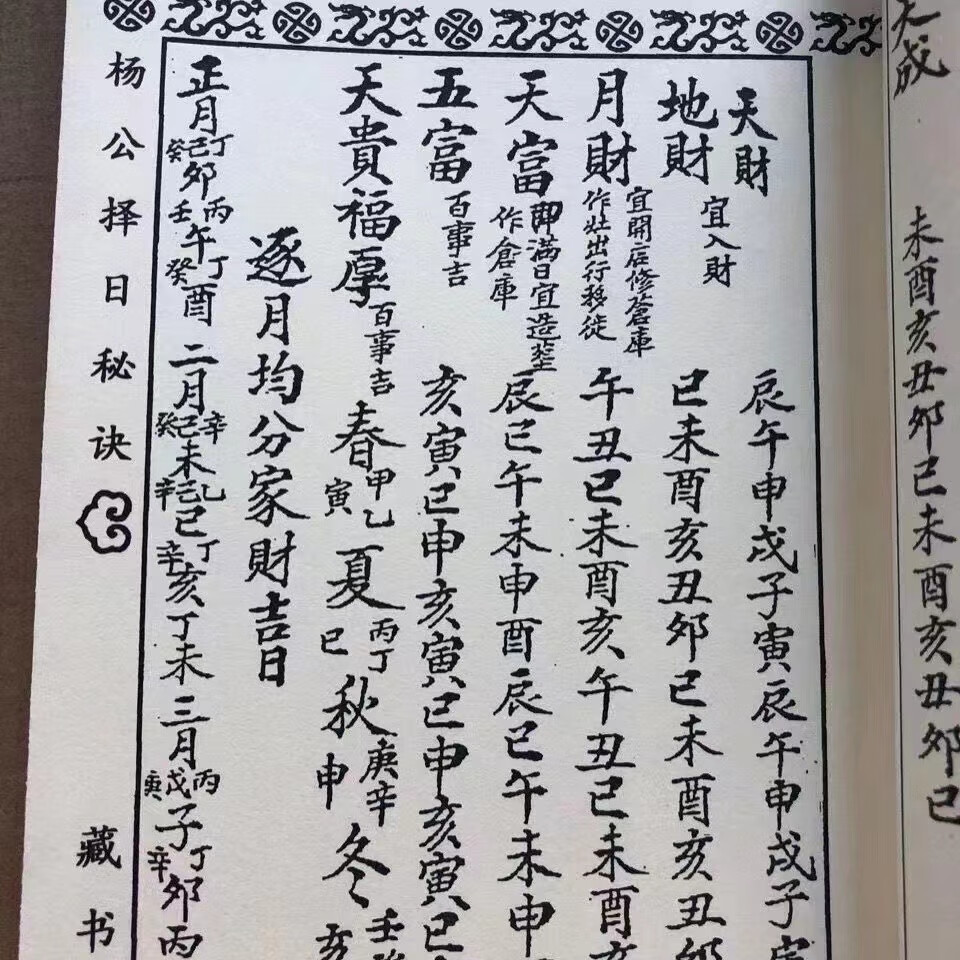 天成 未酉亥丑卯巳未酉亥丑卯巳
天財 宜入財 辰午申戌子寅辰午申戌子寅
地財 巳未酉亥丑卯巳未酉亥丑卯
月財 宜開店修倉庫作灶出行移徙 午丑巳未酉亥午丑巳未酉亥
天富 即滿日宜造葬作倉庫 辰巳午未申酉辰巳午未申
五富 百事吉 亥寅巳申亥寅巳申亥寅巳
天貴福厚 百事吉 春甲乙寅 夏丙丁巳 秋庚辛申 冬壬癸亥
逐月均分家財吉日
正月丁己癸卯丙壬午丁癸酉 二月辛己癸未乙己辛巳丁辛亥丁未 三月丙戊庚子丁辛卯丙
杨公择日秘诀 藏书